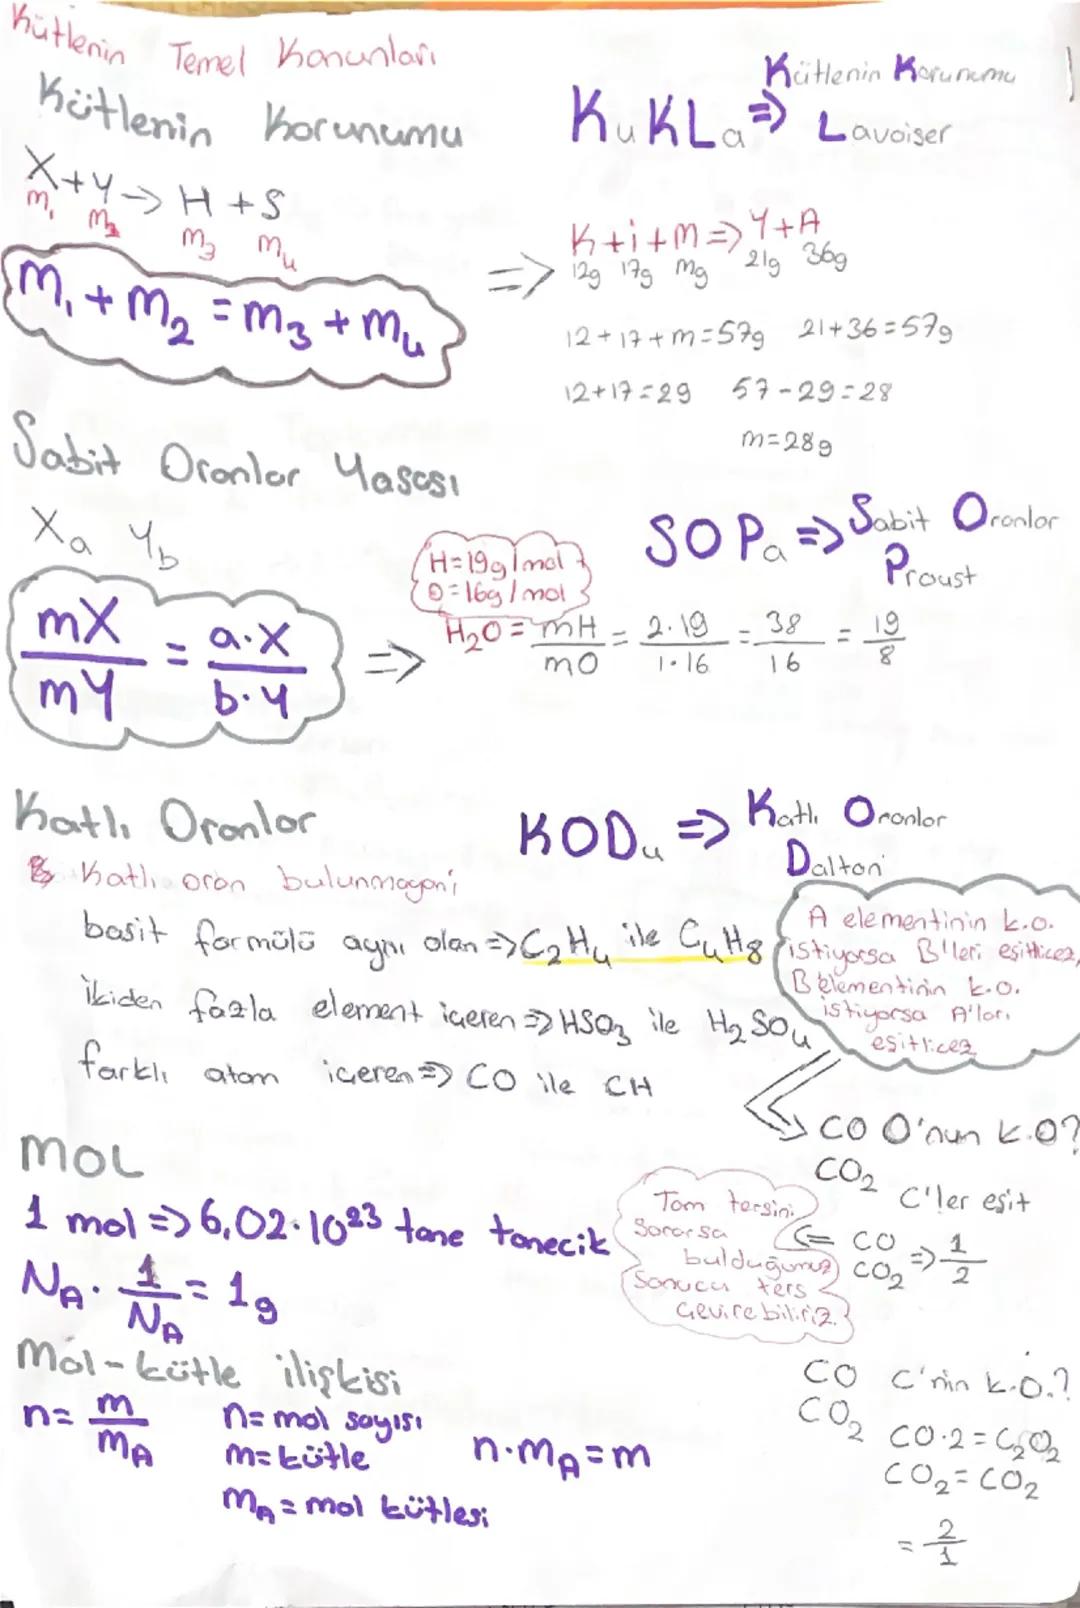 Kütlenin Temel Konunları
Kütlenin Korunumu
KuKLa => Kütlenin Korunumu
Lavoiser
X+Y -> H + S
m₁ m₂ m₃ m₄
m₁ + m₂ = m₃ + m₄
=> K+i+m => Y+A
12g 17g mg 21g 36g
12+17+m=57g 21+36=57g
12+17=29 57-29=28
m=28g
Sabit Oranlar Yasası
Xa Yb
SOPa => Sabit Oranlar
Proust
mX/mY = a.X/b.Y
H=19g/mol
O=16g/mol
=> H₂O = mH/mO = 2.19/1.16 = 38/16 = 19/8
Katlı Oranlar
KODu => Katlı Oranlar
Dalton
Katlı oran bulunmayan;
basit formülü aynı olan => C₂H₄ ile C₄H₈
ikiden fazla element içeren => HSO₃ ile H₂SO₄
farklı atom içeren => CO ile CH
A elementinin k.o.
istiyorsa B'leri eşitlicez,
B elementinin k.o.
istiyorsa A'ları
eşitlicez
CO O'nun k.o?
CO₂
C'ler eşit
CO
CO₂ => 1/2
Tam tersini
Sorarsa
bulduğumuz
Sonucu ters
Çevirebiliriz.
CO C'nin k.o.?
CO₂
CO.2 = C₂O₂
CO₂ = CO₂
= 2/1
MOL
1 mol => 6,02.10²³ tane tanecik
NA. 1/NA = 1g
Mol-kütle ilişkisi
n = m/mA
n= mol sayısı
m= kütle
mA = mol kütlesi
n.mA = m